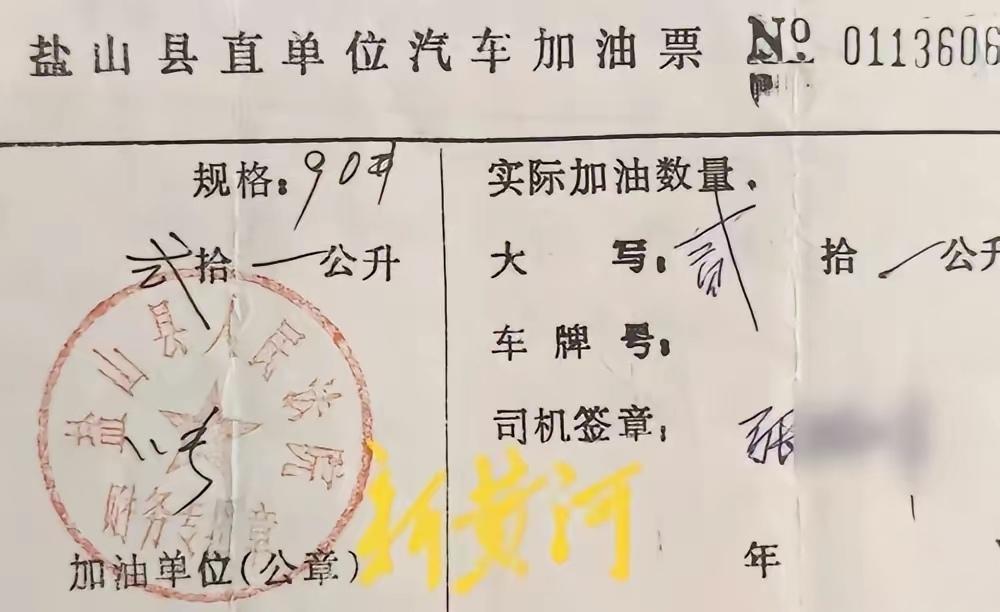 盐山县直单位汽车加油票 № 0113606
规格：90#
贰拾一公升
盐山县人民法院
财务专用章
加油单位(公章)
实际加油数量.
大 写：贰 拾 一 公升
车 牌 号：
司机签章：张
年
新黄河